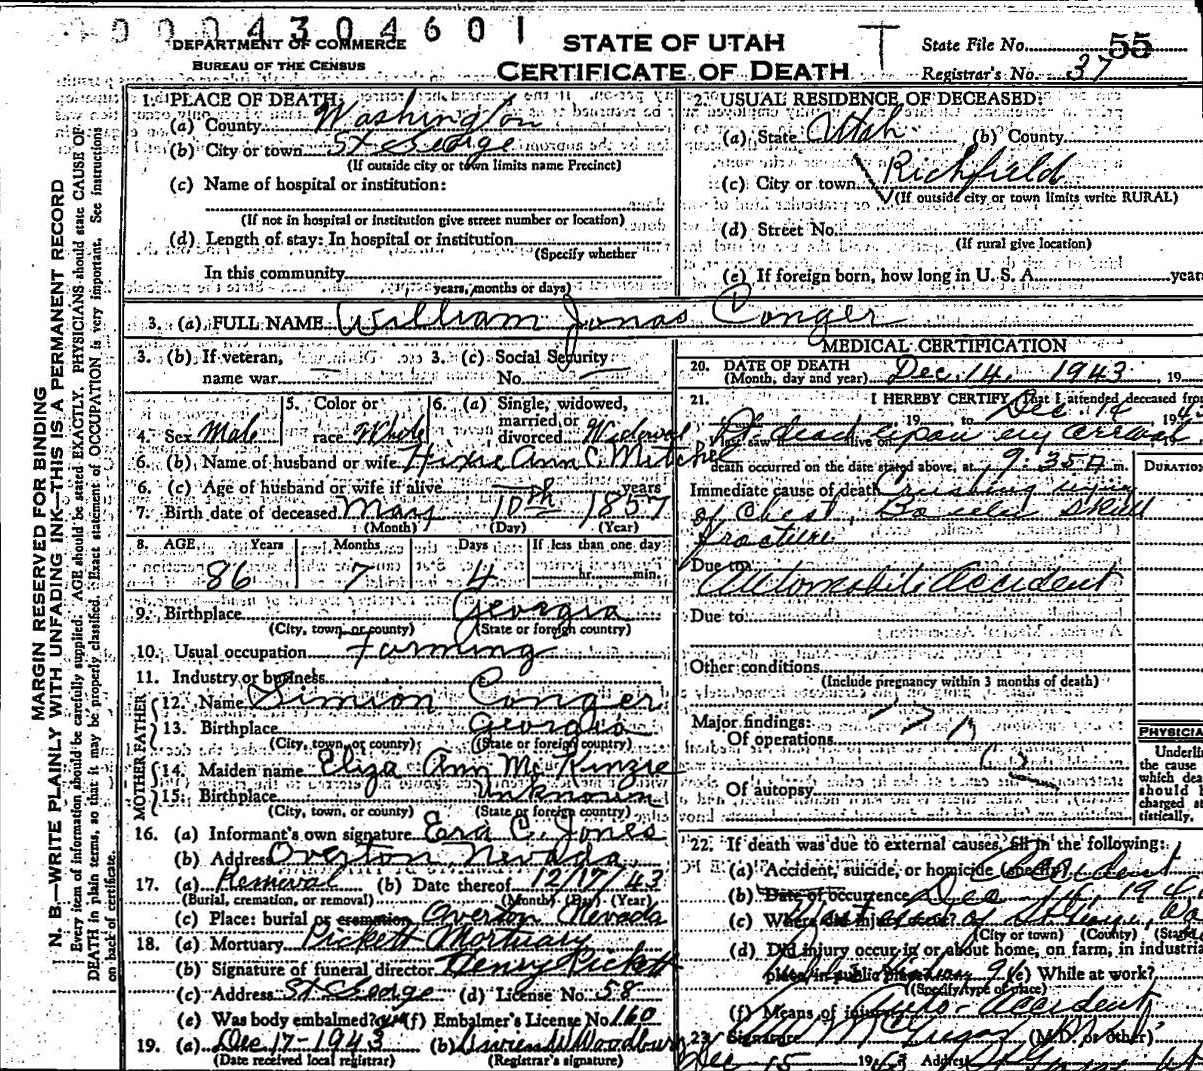 0004304601
DEPARTMENT OF COMMERCE
BUREAU OF THE CENSUS
STATE OF UTAH
CERTIFICATE OF DEATH
T
State File No. 55
Registrar's No. 37
MARGIN RESERVED FOR BINDING
N. B.—WRITE PLAINLY WITH UNFADING INK—THIS IS A PERMANENT RECORD
Every item of information should be carefully supplied. AGE should be stated EXACTLY. PHYSICIANS should state CAUSE OF
DEATH in plain terms, so that it may be properly classified. Exact statement of OCCUPATION is very important. See instructions
on back of certificate.
1. PLACE OF DEATH:
(a) County Washington
(b) City or town St George
(If outside city or town limits name Precinct)
(c) Name of hospital or institution:
(If not in hospital or institution give street number or location)
(d) Length of stay: In hospital or institution
(Specify whether
In this community
years, months or days)
2. USUAL RESIDENCE OF DECEASED:
(a) State Utah (b) County
(c) City or town Richfield
(If outside city or town limits write RURAL)
(d) Street No.
(If rural give location)
(e) If foreign born, how long in U. S. A. years
3. (a) FULL NAME William Jonas Conger
3. (b) If veteran, 3. (c) Social Security
name war No.
4. Sex Male 5. Color or race White 6. (a) Single, widowed, married or divorced Widowed
6. (b) Name of husband or wife Ann C. Mitchel
6. (c) Age of husband or wife if alive years
7. Birth date of deceased May 10th 1857
(Month) (Day) (Year)
8. AGE Years Months Days If less than one day
86 7 4 hr. min.
9. Birthplace Georgia
(City, town, or county) (State or foreign country)
10. Usual occupation Farming
11. Industry or business
FATHER
12. Name Simion Conger
13. Birthplace Georgia
(City, town, or county) (State or foreign country)
MOTHER
14. Maiden name Eliza Ann McKinzie
15. Birthplace Unknown
(City, town, or county) (State or foreign country)
16. (a) Informant's own signature Era C. Jones
(b) Address Overton, Nevada
17. (a) Removal (b) Date thereof 12/17/43
(Burial, cremation, or removal) (Month) (Day) (Year)
(c) Place: burial or cremation Overton Nevada
18. (a) Mortuary Pickett Mortuary
(b) Signature of funeral director Henry Pickett
(c) Address St George (d) License No. 58
(e) Was body embalmed? (f) Embalmer's License No. 160
19. (a) Dec 17-1943 (b) Woodbury
(Date received local registrar) (Registrar's signature)
MEDICAL CERTIFICATION
20. DATE OF DEATH
(Month, day and year) Dec. 14. 1943, 19
21. I HEREBY CERTIFY, That I attended deceased from
19 to Dec. 14 194
I last saw alive on dead upon my arrival
death occurred on the date stated above, at 9:35 m. DURATION
Immediate cause of death Crushing injury
of Chest, Skull
fracture
Due to Automobile Accident
Due to
Other conditions
(Include pregnancy within 3 months of death)
Major findings:
Of operations
Of autopsy
PHYSICIA
Underli
the cause
which dea
should b
charged st
tistically.
22. If death was due to external causes, fill in the following:
(a) Accident, suicide, or homicide (specify) Accident
(b) Date of occurrence Dec 14 194
(c) Where did injury occur? of St George,
(City or town) (County) (State)
(d) Did injury occur in or about home, on farm, in industrial
place, in public place? (e) While at work?
(Specify type of place)
(f) Means of injury Auto-Accident
23. Signature (M.D. or other)
Dec 15 1943 Address St George